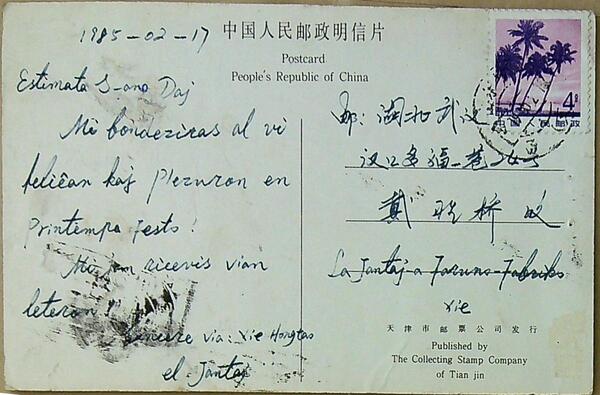 1985-02-17
中国人民邮政明信片
Postcard
People's Republic of China
Estimata S-ano Daj
Mi bondeziras al vi
feliĉan kaj plezuron en
Printempa Festo!
Mi jam ricevis vian
leteron
Sincere via: Xie Hongtao
el Jantaj
4分
邮: 湖北武汉
汉口多福一巷24号
戴 桥 收
La Jantaj-a Faruno-Fabriko
Xie
天津市邮票公司发行
Published by
The Collecting Stamp Company
of Tian jin